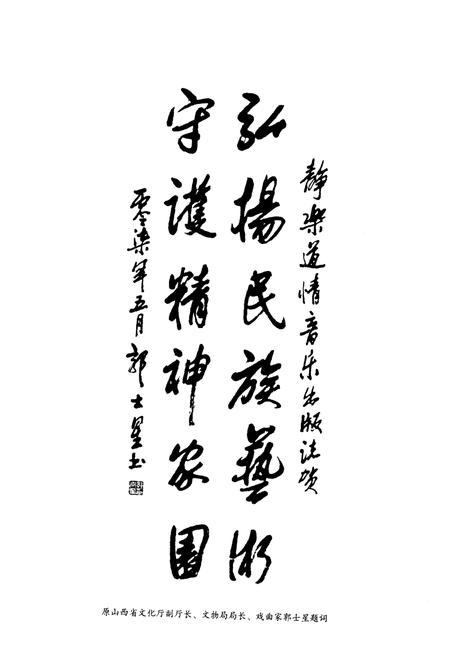 静樂道情音乐出版誌贺
弘揚民族藝術
守護精神家園
零柒年五月郭士星书
原山西省文化厅副厅长、文物局局长、戏曲家郭士星题词